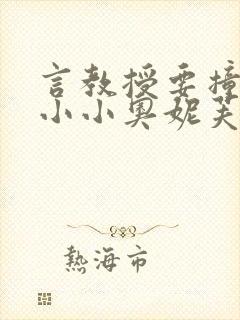 言教授要撞
小小奥妮芙
熱海市